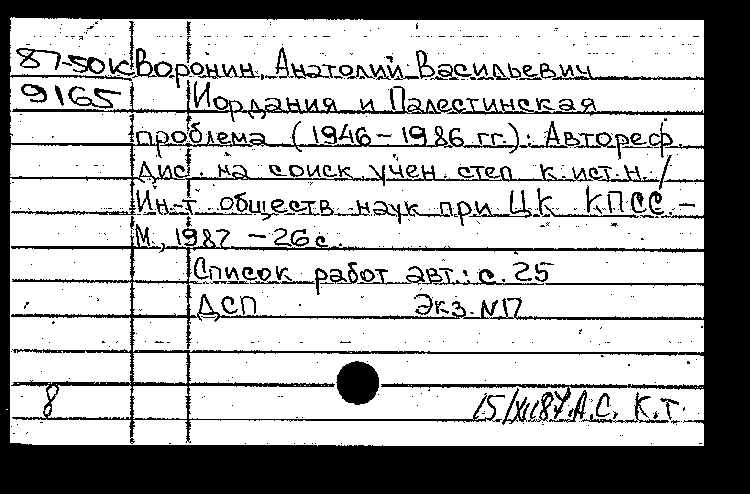 87-50к Воронин, Анатолий Васильевич
9165 Иордания и Палестинская
проблема (1946-1986 гг.): Автореф.
дис. на соиск. учен. степ. к. ист. н. /
Ин-т обществ. наук при ЦК КПСС. -
М., 1987. - 26 с.
Список работ авт.: с. 25
ДСП Экз. N17
8 15/XII87. А.С. К.Т.